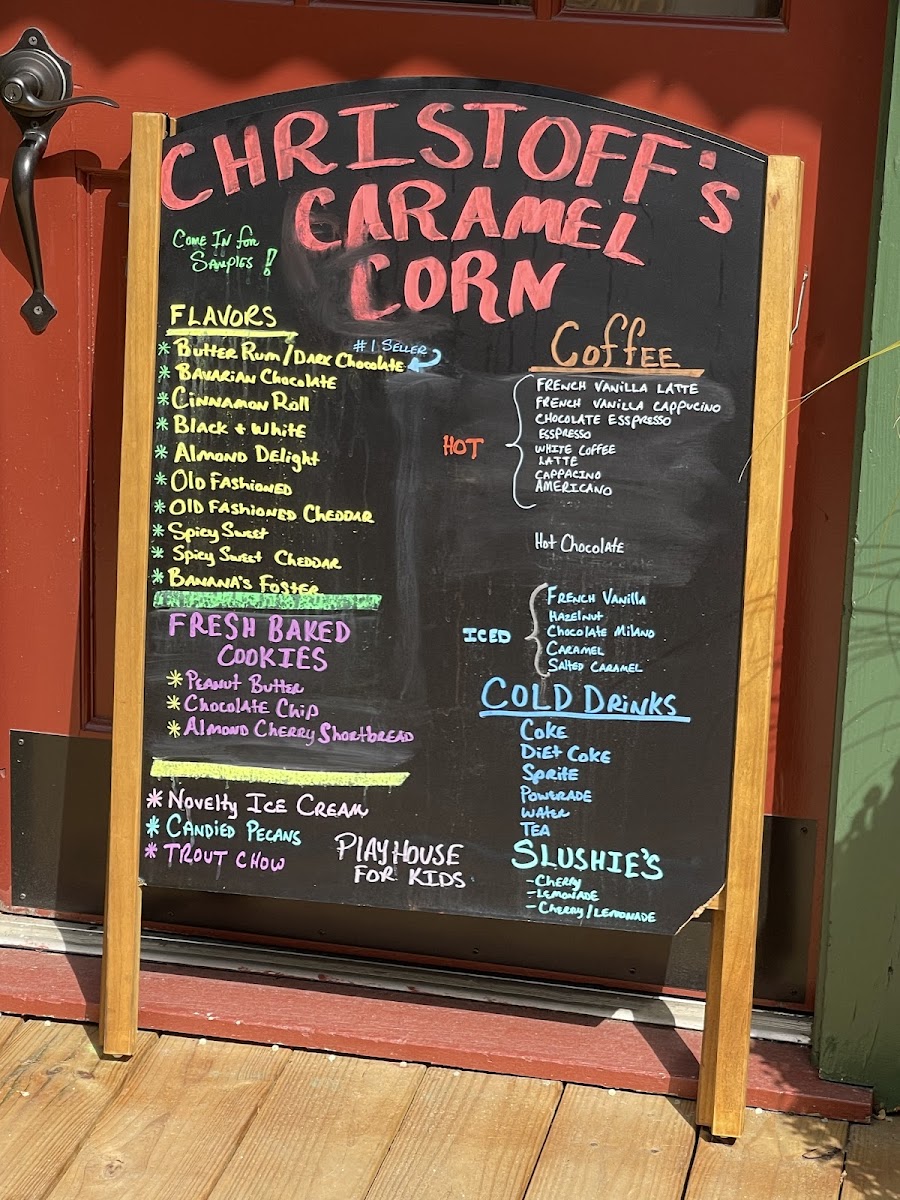 CHRISTOFF'S
CARAMEL
CORN
COME IN FOR
SAMPLES!
FLAVORS
* BUTTER RUM/DARK CHOCOLATE
#1 SELLER
* BAVARIAN CHOCOLATE
* CINNAMON ROLL
* BLACK + WHITE
* ALMOND DELIGHT
* OLD FASHIONED
* OLD FASHIONED CHEDDAR
* SPICY SWEET
* SPICY SWEET CHEDDAR
* BANANA'S FOSTER
FRESH BAKED
COOKIES
* PEANUT BUTTER
* CHOCOLATE CHIP
* ALMOND CHERRY SHORTBREAD
* NOVELTY ICE CREAM
* CANDIED PECANS
* TROUT CHOW
PLAYHOUSE
FOR KIDS
COFFEE
HOT
FRENCH VANILLA LATTE
FRENCH VANILLA CAPPUCINO
CHOCOLATE ESSPRESSO
ESSPRESSO
WHITE COFFEE
LATTE
CAPPACINO
AMERICANO
HOT CHOCOLATE
ICED
FRENCH VANILLA
HAZELNUT
CHOCOLATE MILANO
CARAMEL
SALTED CARAMEL
COLD DRINKS
COKE
DIET COKE
SPRITE
POWERADE
WATER
TEA
SLUSHIE'S
- CHERRY
- LEMONADE
- CHERRY/LEMONADE